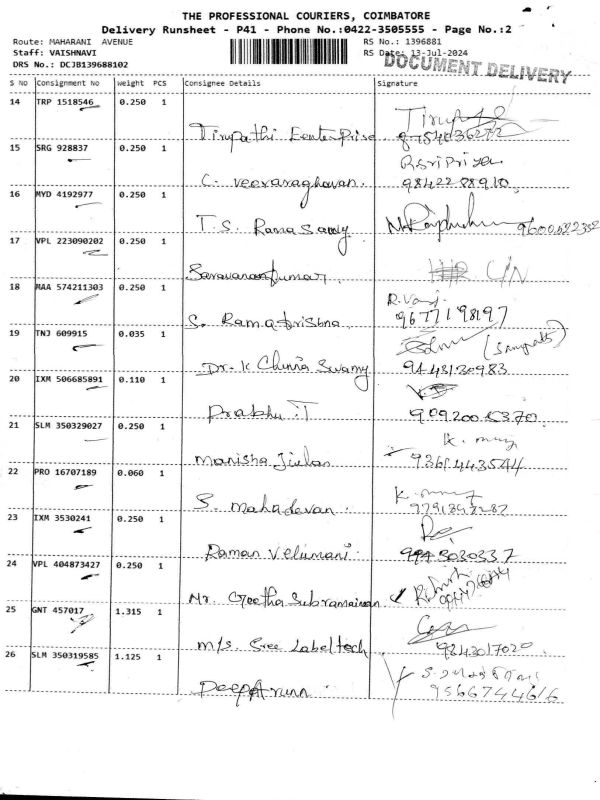 THE PROFESSIONAL COURIERS, COIMBATORE
Delivery Runsheet - P41 - Phone No.:0422-3505555 - Page No.:2
Route: MAHARANI AVENUE RS No.: 1396881
Staff: VAISHNAVI RS Date: 13-Jul-2024
DRS No.: DCJB139688102 DOCUMENT DELIVERY
S NO Consignment No Weight PCS Consignee Details Signature
14 TRP 1518546 0.250 1
Tirupathi Eenterprise
15 SRG 928837 0.250 1
C. Veeraraghavan. 9842288910
16 MYD 4192977 0.250 1
T.S. Ramasamy 9600622352
17 VPL 223090202 0.250 1
Saravanankumar C/N
18 MAA 574211303 0.250 1
S. Ramakrishna 9677198197
19 TNJ 609915 0.035 1
Dr. K Chinna Swamy 9443130983
20 IXM 506685891 0.110 1
Prabhu.T
21 SLM 350329027 0.250 1
Manisha 9361443544
22 PRO 16707189 0.060 1
S. Mahadevan.
23 IXM 3530241 0.250 1
Raman Velumani 9943030337
24 VPL 404873427 0.250 1
Mr. Geetha Subramanian
25 GNT 457017 1.315 1
M/s. Sree Labeltech 9843017020
26 SLM 350319585 1.125 1
Deep Arunn 9566744616